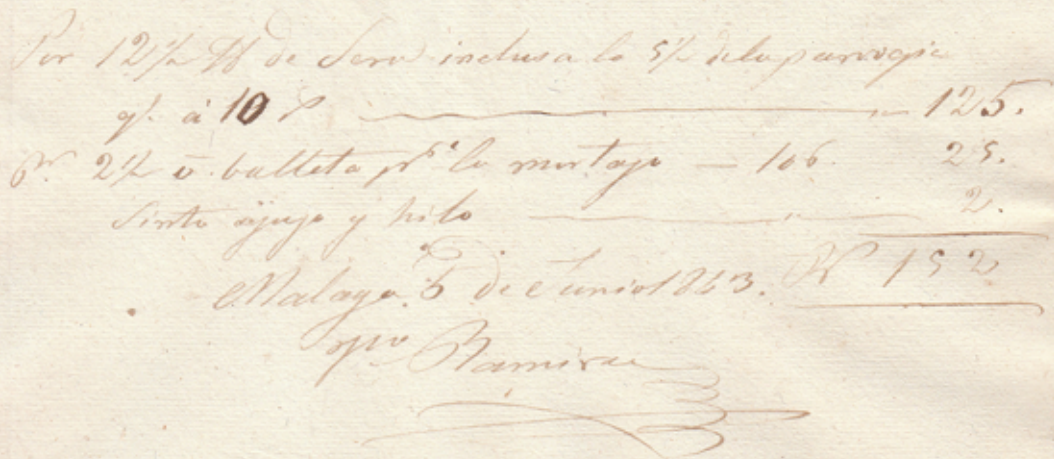 Por 12½ ℔ de Sera inclusa la 5½ dela parroqia
q.e á 10 r ——— " — 125.
P.r 2½ v. balleta p.ª la mortaja — 10 b. 25.
Sinta ajuja y hilo ——— " ——— 2.
Malaga 5 de Junio 1843. Rv 152
Ramirez